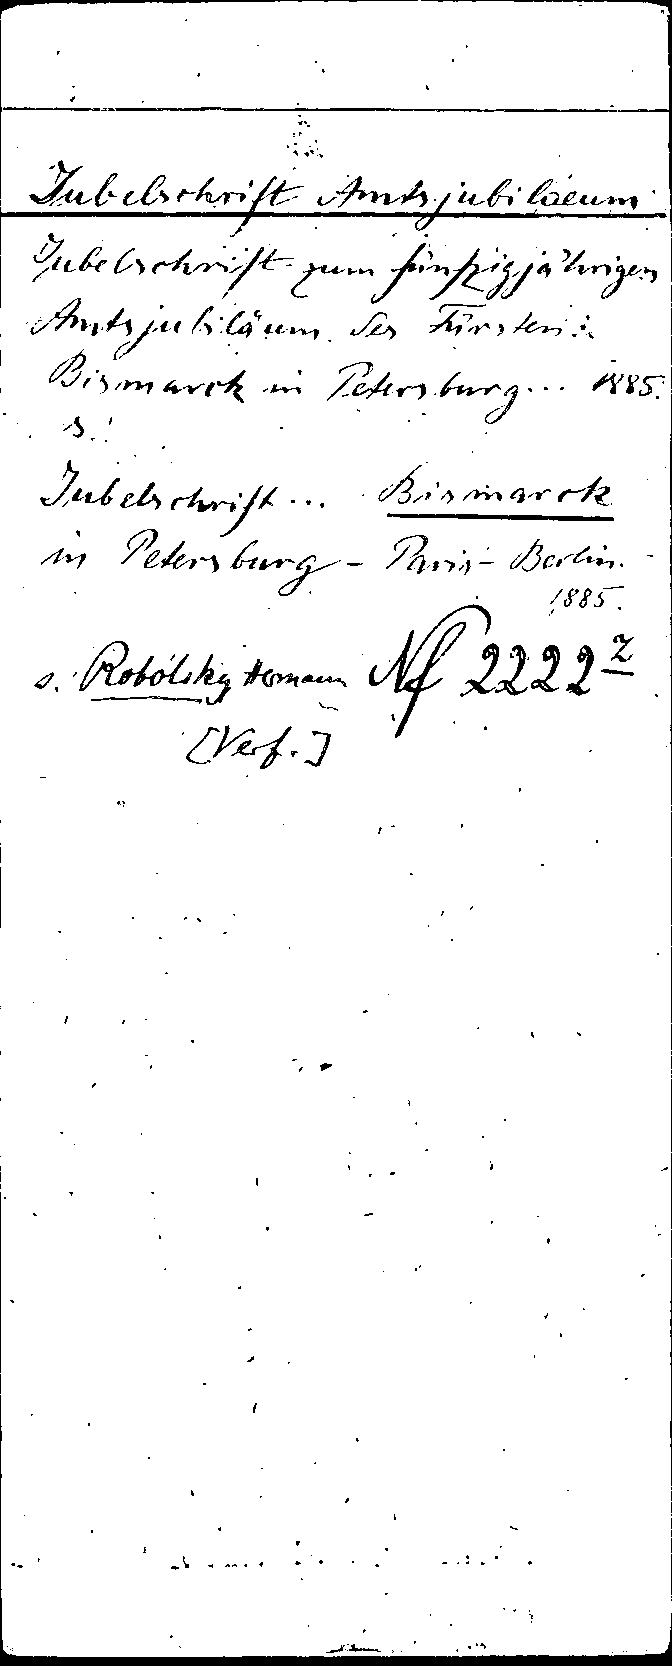 Jubelschrift Amtsjubilaeum
Jubelschrift zum fünfzigjährigen
Amtsjubiläum des Fürsten
Bismarck in Petersburg... 1885.
s.
Jubelschrift... Bismarck
in Petersburg - Paris - Berlin.
1885.
s. Robolsky Hermann Nf 2222 z
[Verf.]